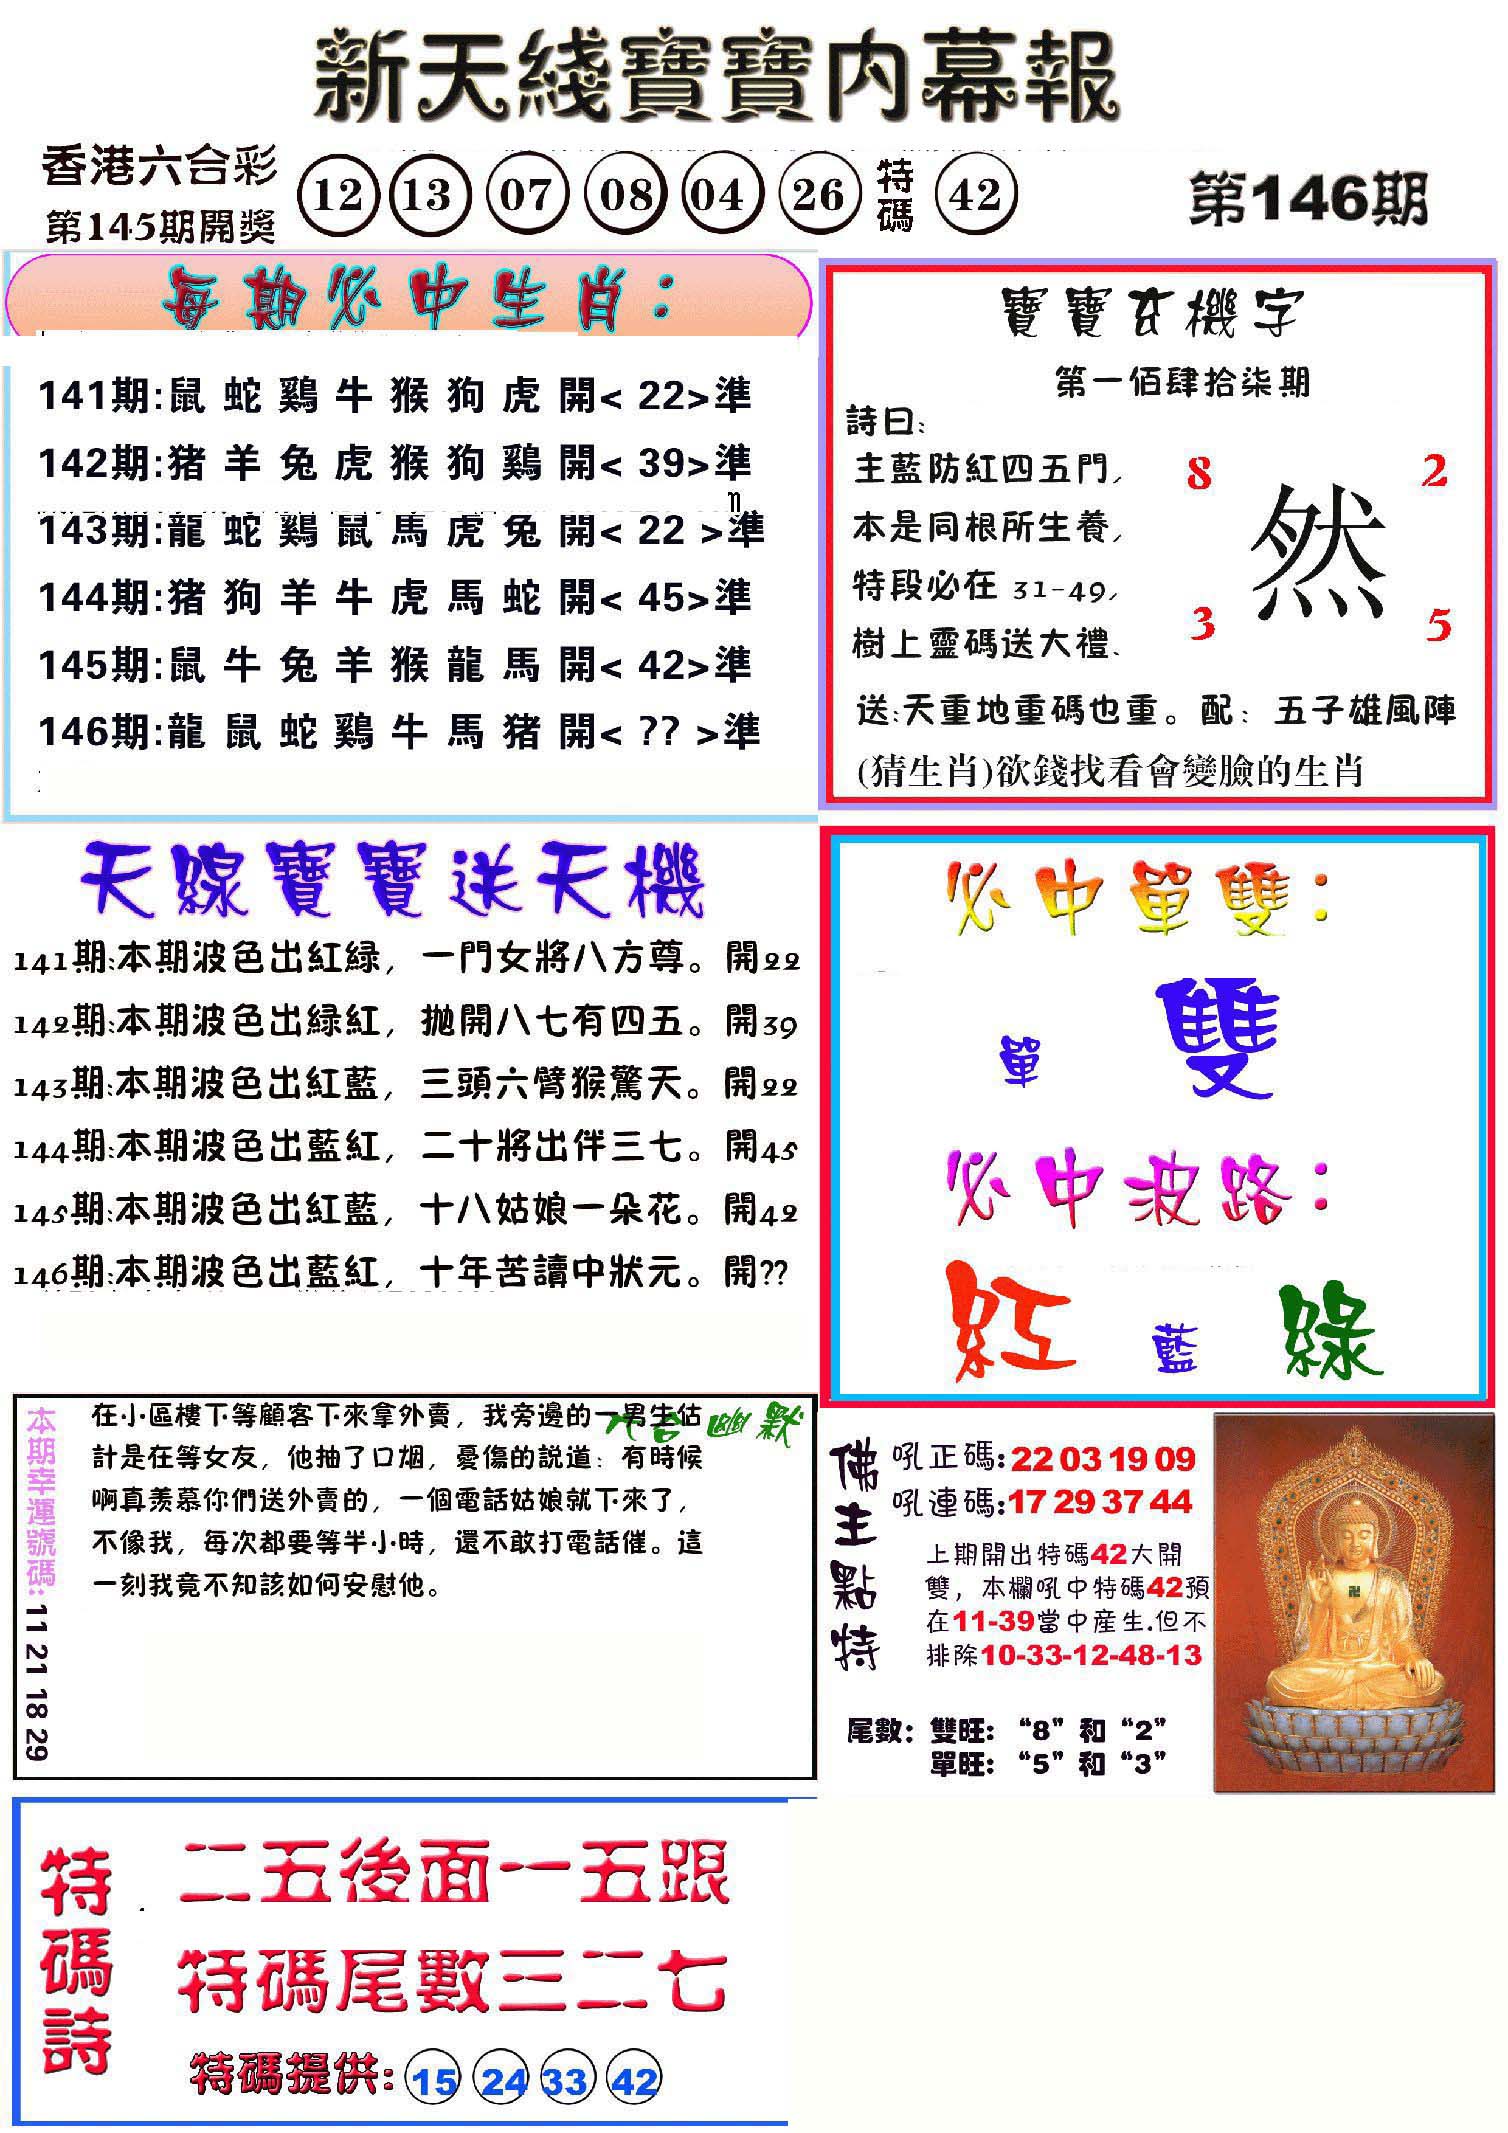 新天綫寶寶内幕報
香港六合彩
第145期開獎
12 13 07 08 04 26 特碼 42
第146期
每期必中生肖：
141期:鼠 蛇 鷄 牛 猴 狗 虎 開< 22>準
142期:猪 羊 兔 虎 猴 狗 鷄 開< 39>準
143期:龍 蛇 鷄 鼠 馬 虎 兔 開< 22 >準
144期:猪 狗 羊 牛 虎 馬 蛇 開< 45>準
145期:鼠 牛 兔 羊 猴 龍 馬 開< 42>準
146期:龍 鼠 蛇 鷄 牛 馬 猪 開< ?? >準
寶寶玄機字
第一佰肆拾柒期
詩曰:
主藍防紅四五門,
本是同根所生養,
特段必在 31-49,
樹上靈碼送大禮.
8 2
然
3 5
送:天重地重碼也重。配：五子雄風陣
(猜生肖)欲錢找看會變臉的生肖
天線寶寶送天機
141期:本期波色出紅緑，一門女將八方尊。開22
142期:本期波色出緑紅，拋開八七有四五。開39
143期:本期波色出紅藍，三頭六臂猴驚天。開22
144期:本期波色出藍紅，二十將出伴三七。開45
145期:本期波色出紅藍，十八姑娘一朵花。開42
146期:本期波色出藍紅，十年苦讀中狀元。開??
必中單雙：
單 雙
必中波路：
紅 藍 綠
本期幸運號碼:11 21 18 29
六合幽默
在小區樓下等顧客下來拿外賣，我旁邊的一男生估
計是在等女友，他抽了口烟，憂傷的説道：有時候
啊真羡慕你們送外賣的，一個電話姑娘就下來了，
不像我，每次都要等半小時，還不敢打電話催。這
一刻我竟不知該如何安慰他。
佛主點特
吼正碼:22 03 19 09
吼連碼:17 29 37 44
上期開出特碼42大開
雙，本欄吼中特碼42預
在11-39當中産生.但不
排除10-33-12-48-13
尾數：雙旺：“8”和“2”
單旺：“5”和“3”
特碼詩
二五後面一五跟
特碼尾數三二七
特碼提供: 15 24 33 42